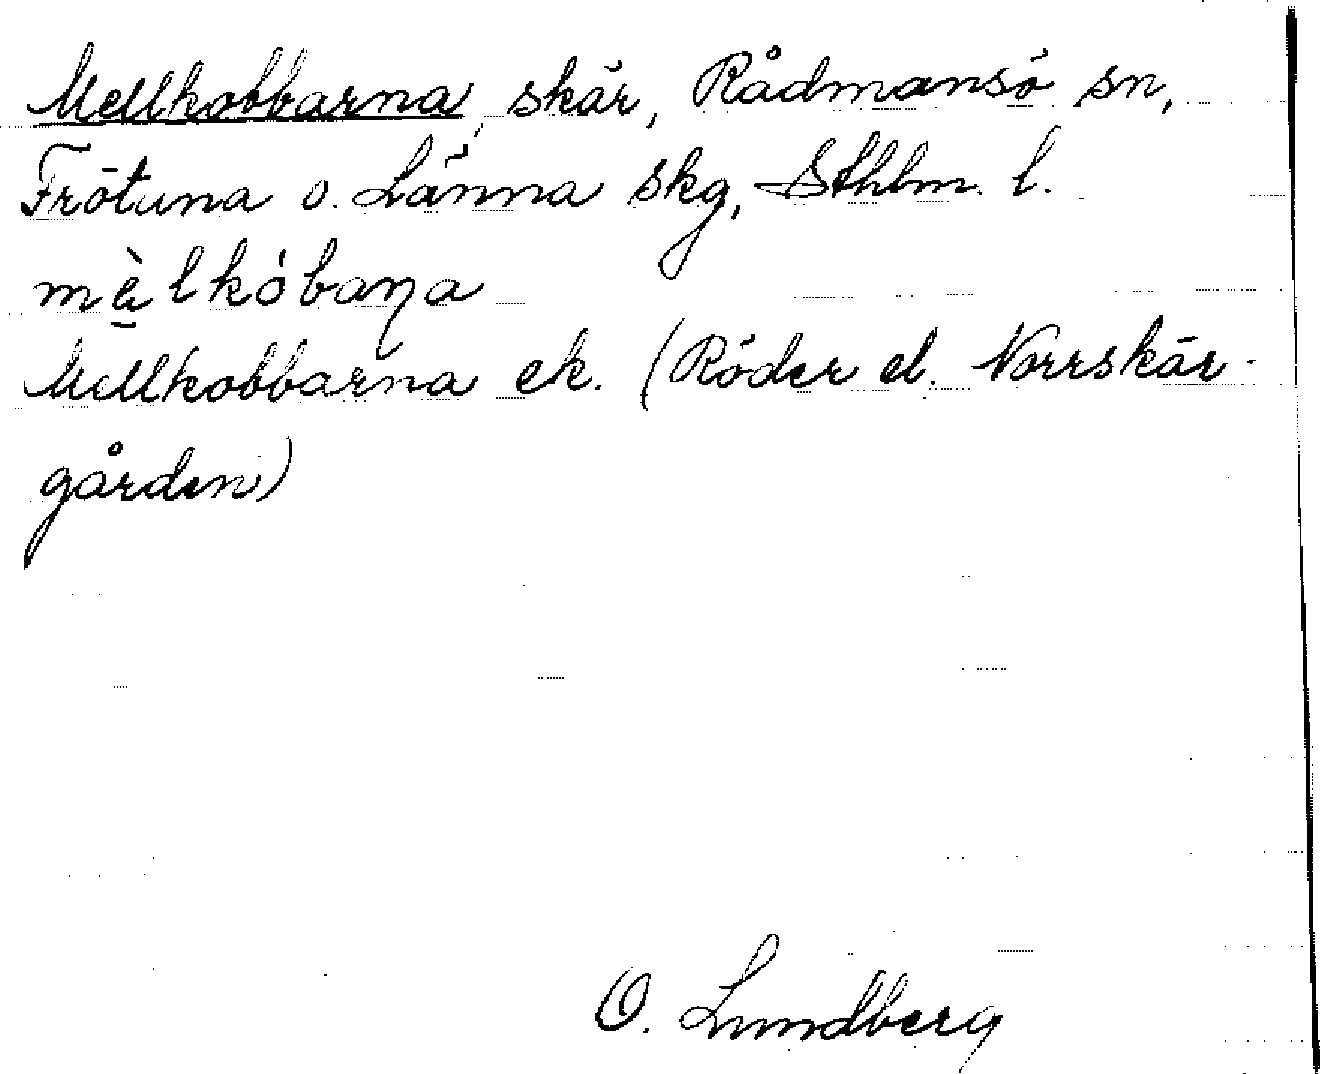 Mellkobbarna, skär, Rådmansö sn,
Frötuna o. Länna skg, Sthlm. l.
mὲ̱lkóbaɳa
Mellkobbarna ek. (Röder el. Norrskär-
gården)
O. Lundberg